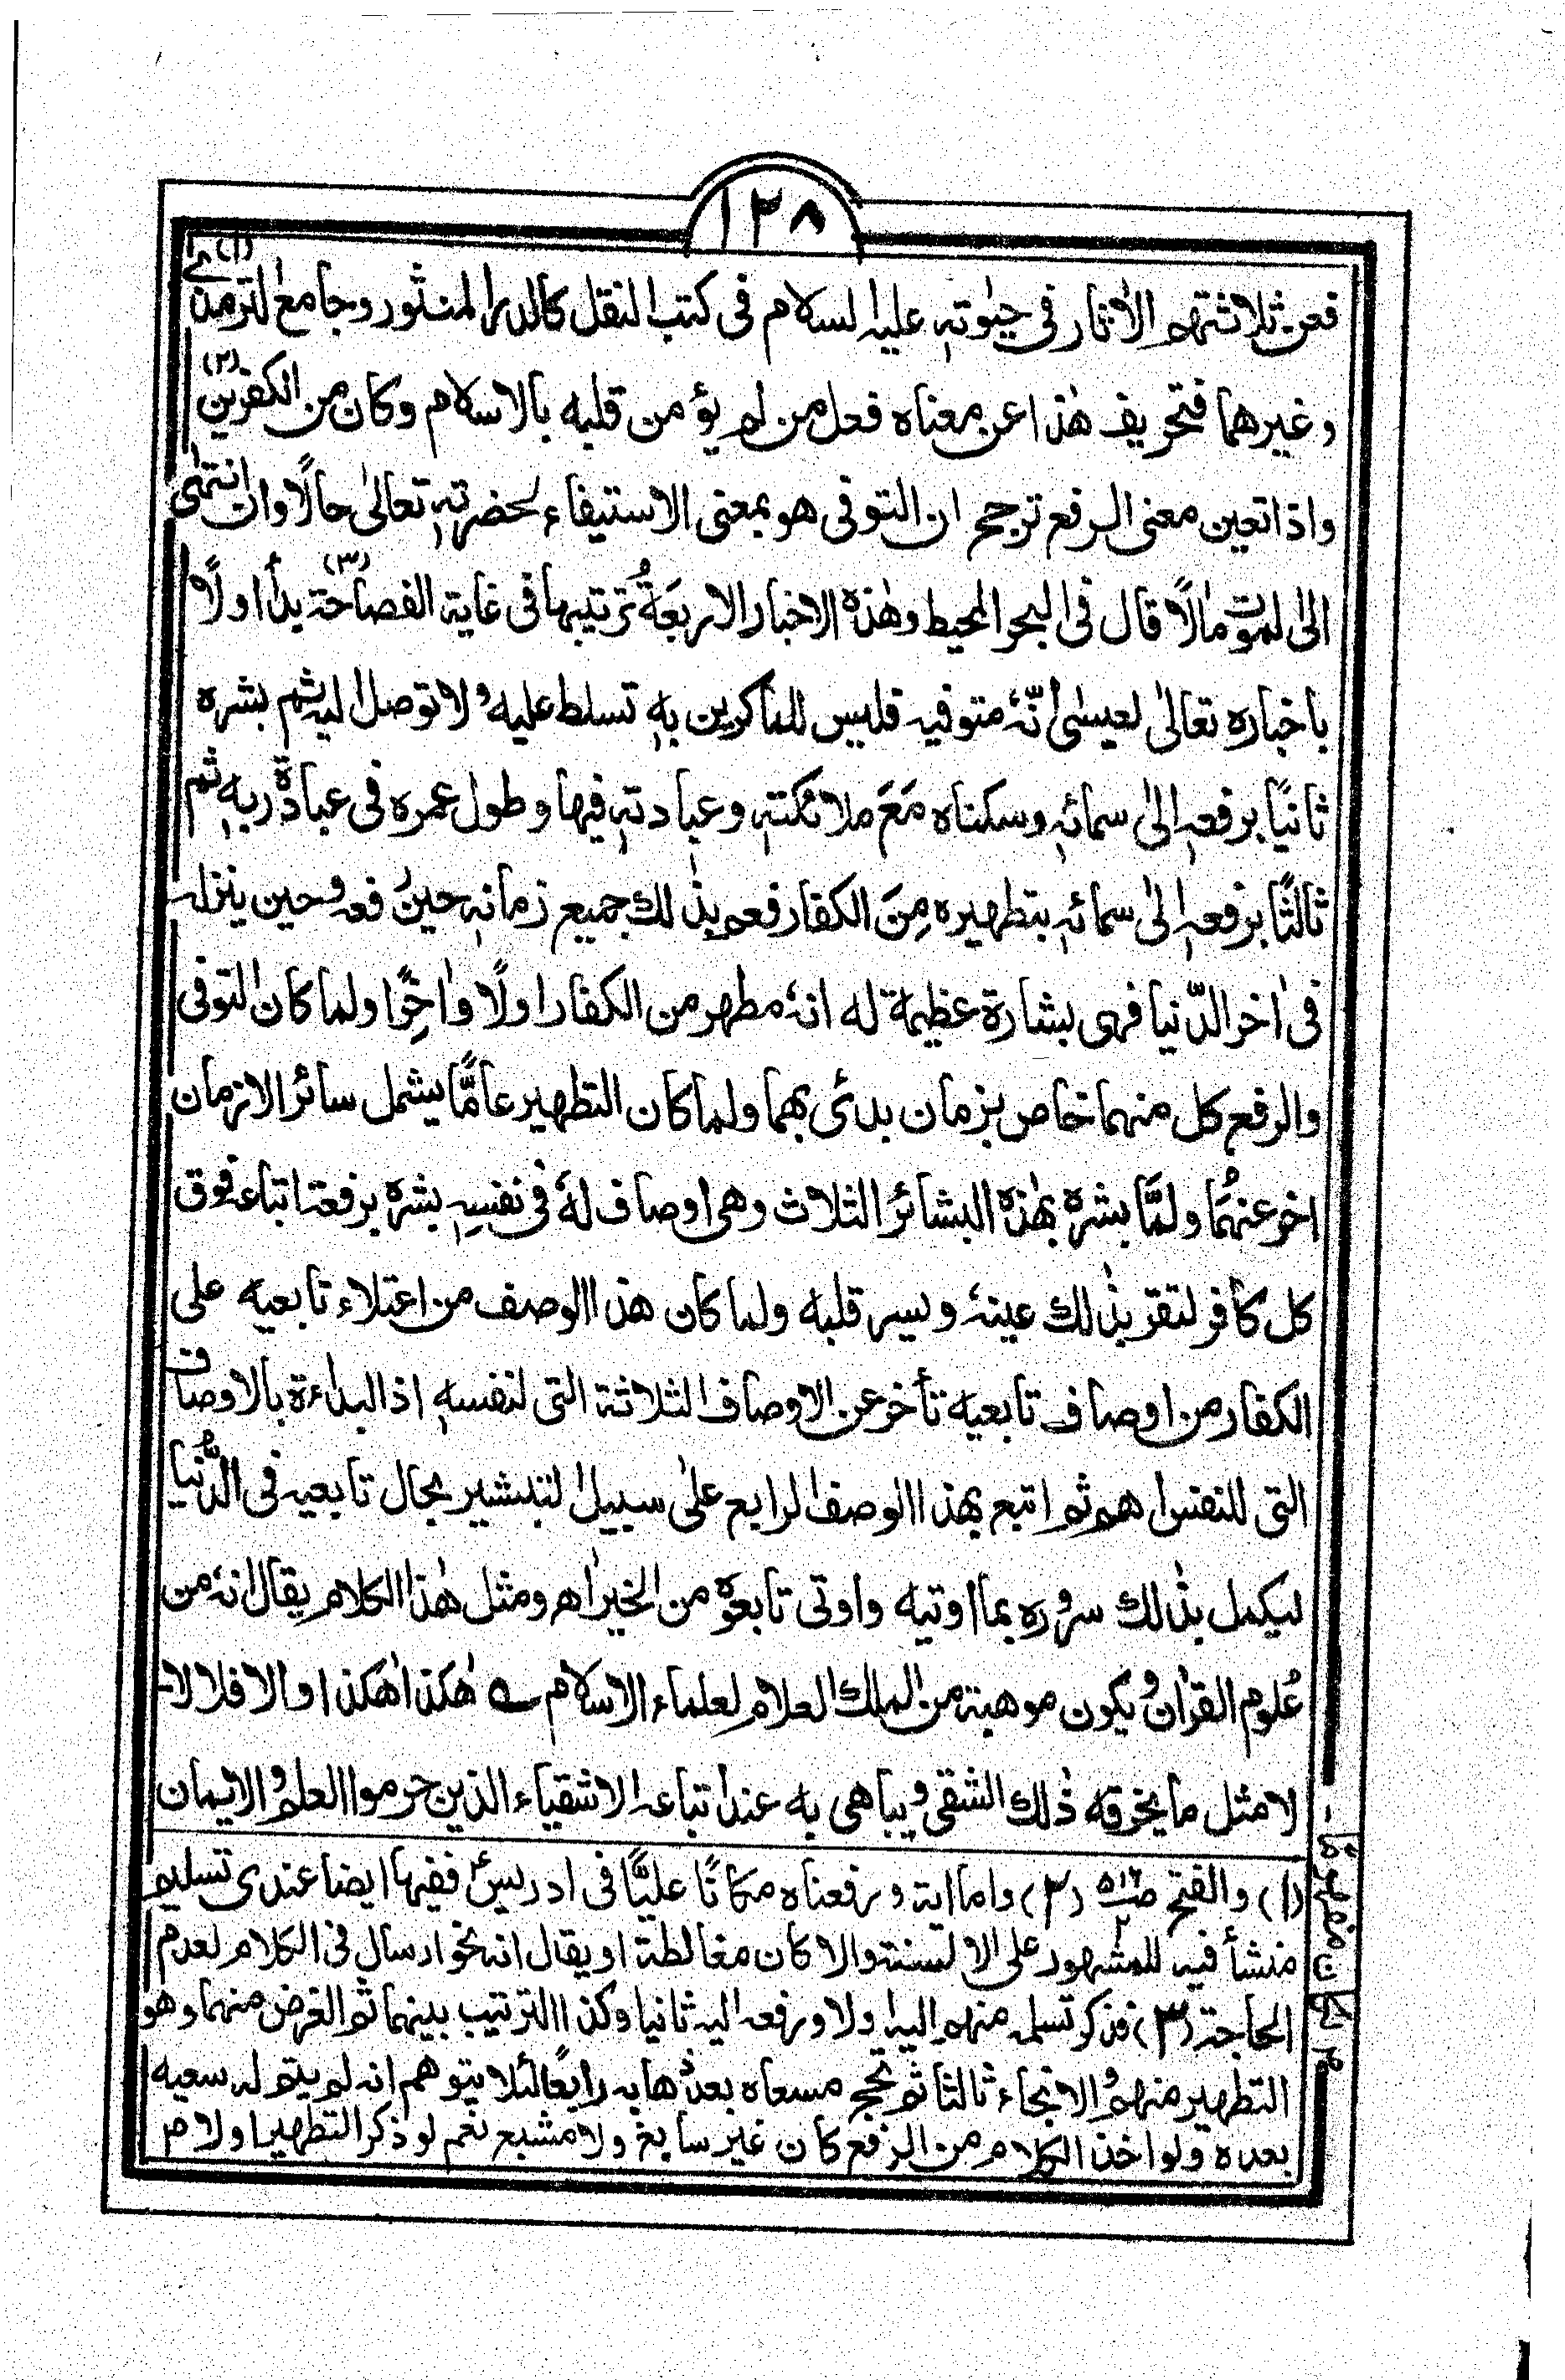 ١٢٨
فعن ثلاثتهم الاٰثار فى حيٰوتهٖ عليه السلام فى كتب النقل كالدر المنثور وجامع الترمذى (١)
وغيرهما فتحريف هٰذا عن معناه فعل من لم يؤمن قلبه بالاسلام وكان من الكٰفرين (٢)
واذا تعين معنى الرفع ترجح ان التوفى هو بمعنى الاستيفاء لحضرتهٖ تعالىٰ حالًا وان انتهٰى
الى الموت مٰالًا قال فى البحر المحيط وهٰذه الاخبار الاربعةُ ترتيبها فى غاية الفصاحة (٣) بدأ اولًا
باخباره تعالىٰ لعيسىٰ انّهٗ متوفيه فليس للماكرين بهٖ تسلط عليه ولا توصل اليه ثم بشره
ثانيًا برفعهٖ الىٰ سمائهٖ وسكناه مَعَ ملائكتهٖ وعبادتهٖ فيها وطول عمره فى عبادة ربهٖ ثم
ثالثًا برفعهٖ الىٰ سمائهٖ بتطهيره مِنَ الكفار فعم بذٰلك جميع زمانهٖ حين رفعه وحين ينزله
فى اٰخر الدّنيا فهى بشارة عظيمة له انهٗ مطهر من الكفار اولًا واٰخرًا ولما كان التوفى
والرفع كل منهما خاص بزمان بدئ بهما ولما كان التطهير عامًّا يشمل سائر الازمان
اخر عنهُما ولمَّا بشره بهٰذه البشائر الثلاث وهى اوصاف لهٗ فى نفسهٖ بشره برفعة اتباعه فوق
كل كافر لتقر بذٰلك عينهٗ ويسر قلبه ولما كان هذا الوصف من اعتلاء تابعيه على
الكفار من اوصاف تابعيه تأخر عن الاوصاف الثلاثة التى لنفسهٖ اذ البداءة بالاوصاف
التى للنفس اهم ثم اتبع بهذا الوصف الرابع علىٰ سبيل التبشير بحال تابعيه فى الدُّنيا
ليكمل بذٰلك سروره بما اوتيه واوتى تابعوه من الخير اهـ ومثل هٰذا الكلام يقال انهٗ من
عُلوم القراٰن ويكون موهبة من الملك العلام لعلماء الاسلام ؎ هٰكذا هٰكذا والا فلا لا۔
لا مثل ما يخرقه ذٰلك الشقى ويباهى به عند اتباعه الاشقياء الذين حرموا العلم والايمان
(١) والفتح (٢) واما اية ورفعناه مكانًا عليًّا فى ادريسؑ ففيها ايضا عندى تسليم
منشأ فيه للمشهور على الالسنة والا كان مغالطة او يقال انه نحو ارسال فى الكلام لعدم
الحاجة (٣) فذكر تسلمه منهم اليه اولا ورفعه اليه ثانيا وكذا الترتيب بينهما ثم الغرض منهما وهو
التطهير منهم والانجاء ثالثا ثم نجح مسعاه بعد ذهابه رابعًا لئلا يتوهم انه لم يتم له سعيه
بعده ولو اخذ الكلام من الرفع كان غير سابغ ولا مشبع نعم لو ذكر التطهير اولا